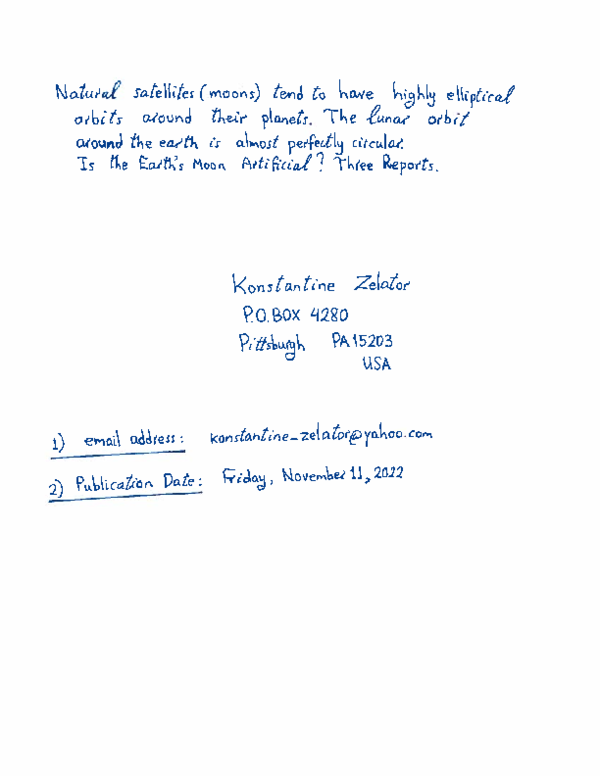 Natural satellites (moons) tend to have highly elliptical
orbits around their planets. The lunar orbit
around the earth is almost perfectly circular.
Is the Earth's Moon Artificial? Three Reports.
Konstantine Zelator
P.O. BOX 4280
Pittsburgh PA 15203
USA
1) email address: konstantine_zelator@yahoo.com
2) Publication Date: Friday, November 11, 2022